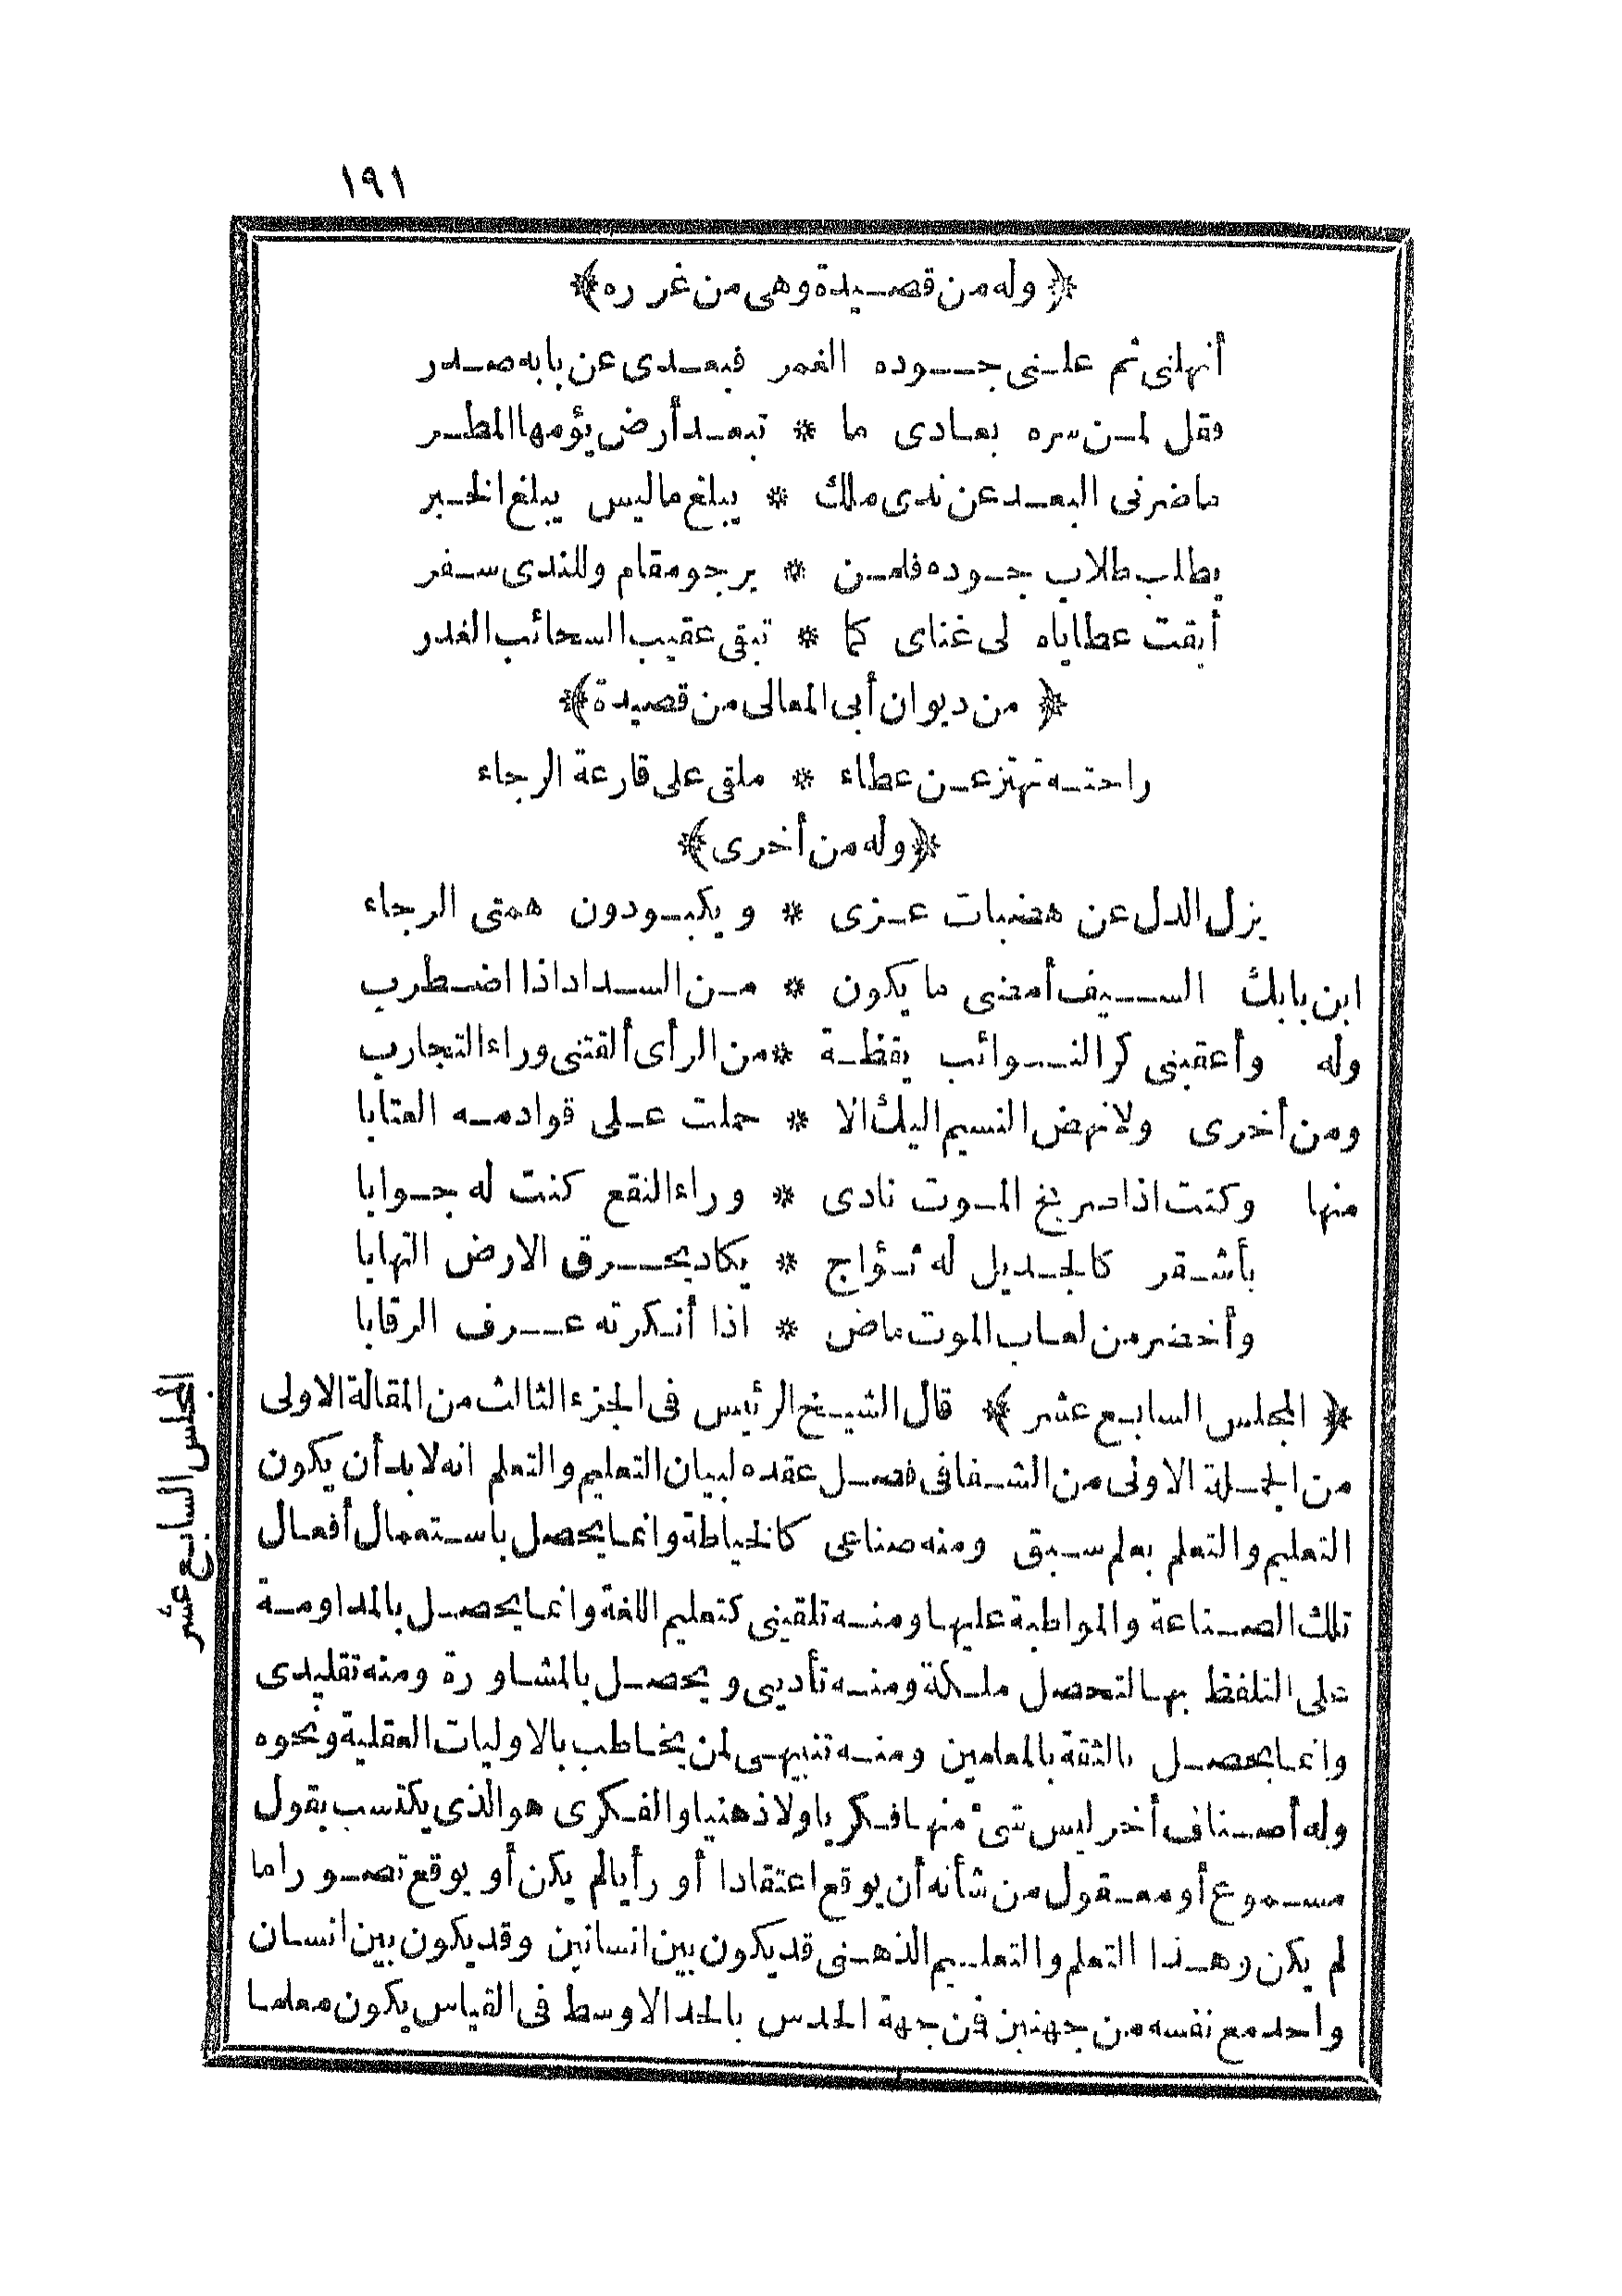 ١٩١
﴿وله من قصيدة وهي من غرره﴾
أنهلنى ثم علنى جوده الغمر فبعدى عن بابه صدر
فقل لمن سره بعادى ما * تبعد أرض يؤمها المطر
ماضرنى البعد عن ندى ملك * يبلغ ماليس يبلغ الخبر
يطلب طلاب جوده فلمن * يرجو مقام وللندى سفر
أبقت عطاياه لى غناى كما * تبقى عقيب السحائب الغدر
﴿من ديوان أبى المعالى من قصيدة﴾
راحته تهتز عن عطاء * ملقى على قارعة الرجاء
﴿وله من أخرى﴾
يزل الدل عن هضبات عزى * ويكبو دون همتى الرجاء
ابن بابك السيف أمضى ما يكون * من السداد اذا اضطرب
وله وأعقبنى كر النوائب يقظة * من الرأى ألقتنى وراء التجارب
ومن أخرى ولا نهض النسيم اليك الا * حملت على قوادمه العتابا
منها وكنت اذا صريخ الموت نادى * وراء النقع كنت له جوابا
بأشقر كالجديل له ثؤاج * يكاد يحرق الارض التهابا
وأخضر من لعاب الموت ماض * اذا أنكرته عرف الرقابا
﴿المجلس السابع عشر﴾ قال الشيخ الرئيس فى الجزء الثالث من المقالة الاولى
من الجملة الاولى من الشفا فى فصل عقده لبيان التعليم والتعلم انه لا بد أن يكون
التعليم والتعلم بعلم سبق ومنه صناعى كالخياطة وانما يحصل باستعمال أفعال
تلك الصناعة والمواظبة عليها ومنه تلقينى كتعليم اللغة وانما يحصل بالمداومة
على التلفظ بها لتحصل ملكة ومنه تأديبى ويحصل بالمشاورة ومنه تقليدى
وانما يحصل بالثقة بالمعلمين ومنه تنبيهى لمن يخاطب بالاوليات العقلية ونحوه
وله أصناف أخر ليس شئ منها فكريا ولا ذهنيا والفكرى هو الذى يكتسب بقول
مسموع أو معقول من شأنه أن يوقع اعتقادا أو رأيا لم يكن أو يوقع تصورا ما
لم يكن وهذا التعلم والتعليم الذهنى قد يكون بين انسانين وقد يكون بين انسان
واحد مع نفسه من جهتين فمن جهة الحدس بالحد الاوسط فى القياس يكون معلما
المجلس السابع عشر